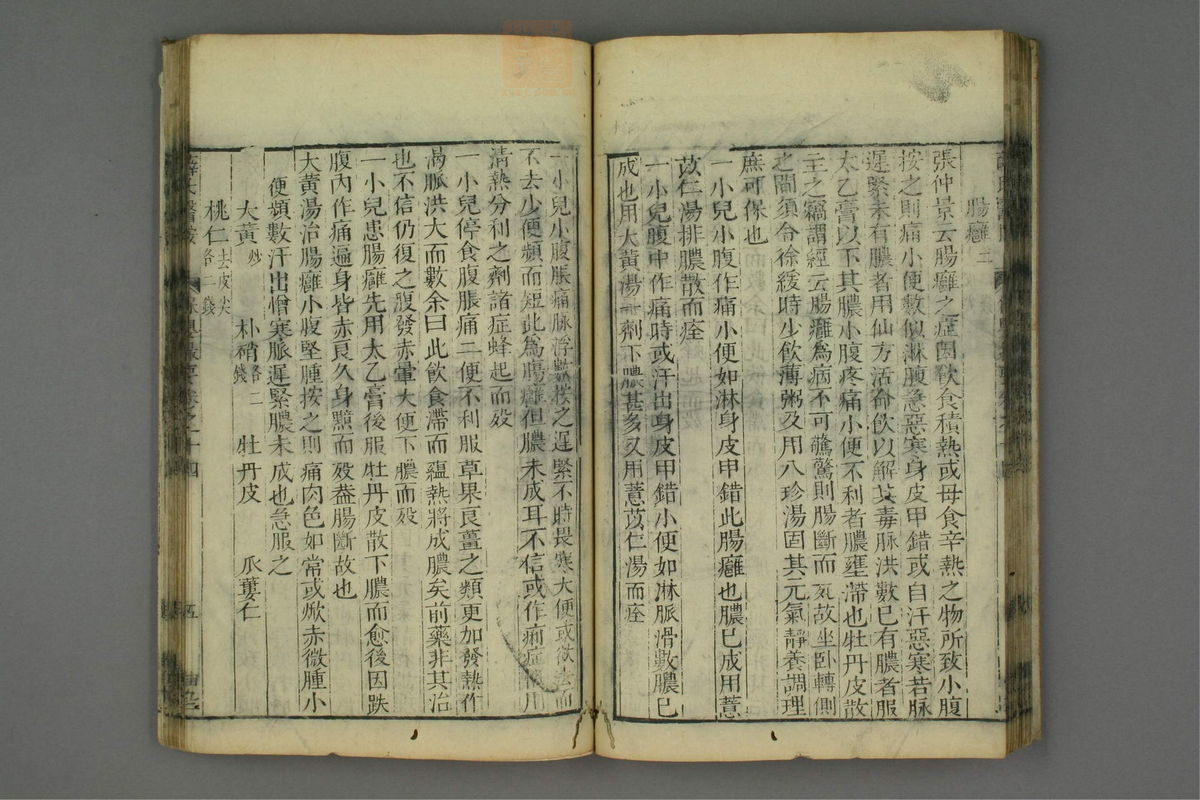 腸癰二
張仲景云腸癰之症因飲食積熱或母食辛熱之物所致小腹
按之則痛小便數似淋腹急惡寒身皮甲錯或自汗惡寒若脉
遲緊未有膿者用仙方活命飲以解其毒脉洪數已有膿者服
太乙膏以下其膿小腹疼痛小便不利者膿壅滯也牡丹皮散
主之竊謂經云腸癰爲病不可驚驚則腸斷而死故坐卧轉側
之間須令徐緩時少飲薄粥及用八珍湯固其元氣靜養調理
庶可保也
一小兒小腹作痛小便如淋身皮甲錯此腸癰也膿已成用薏
苡仁湯排膿散而痊
一小兒腹中作痛時或汗出身皮甲錯小便如淋脈滑數膿已
成也用大黄湯一劑下膿甚多又用薏苡仁湯而痊
一小兒小腹脹痛脉浮數按之遲緊不時畏寒大便或欲去而
不去小便頻而短此為腸癰但膿未成耳不信或作痢症用
清熱分利之劑諸症蜂起而歿
一小兒停食腹脹痛二便不利服草果良薑之類更加發熱作
渴脈洪大而數余曰此飲食滯而蘊熱將成膿矣前藥非其治
也不信仍復之腹發赤暈大便下膿而歿
一小兒患腸癰先用太乙膏後服牡丹皮散下膿而愈後因跌
腹内作痛遍身皆赤良久身黯而歿葢腸斷故也
大黄湯治腸癰小腹堅腫按之則痛肉色如常或焮赤微腫小
便頻數汗出憎寒脈遲緊膿未成也急服之
大黄炒 朴硝各二錢 牡丹皮 瓜蔞仁
桃仁去皮尖各二錢
卷之十四 五